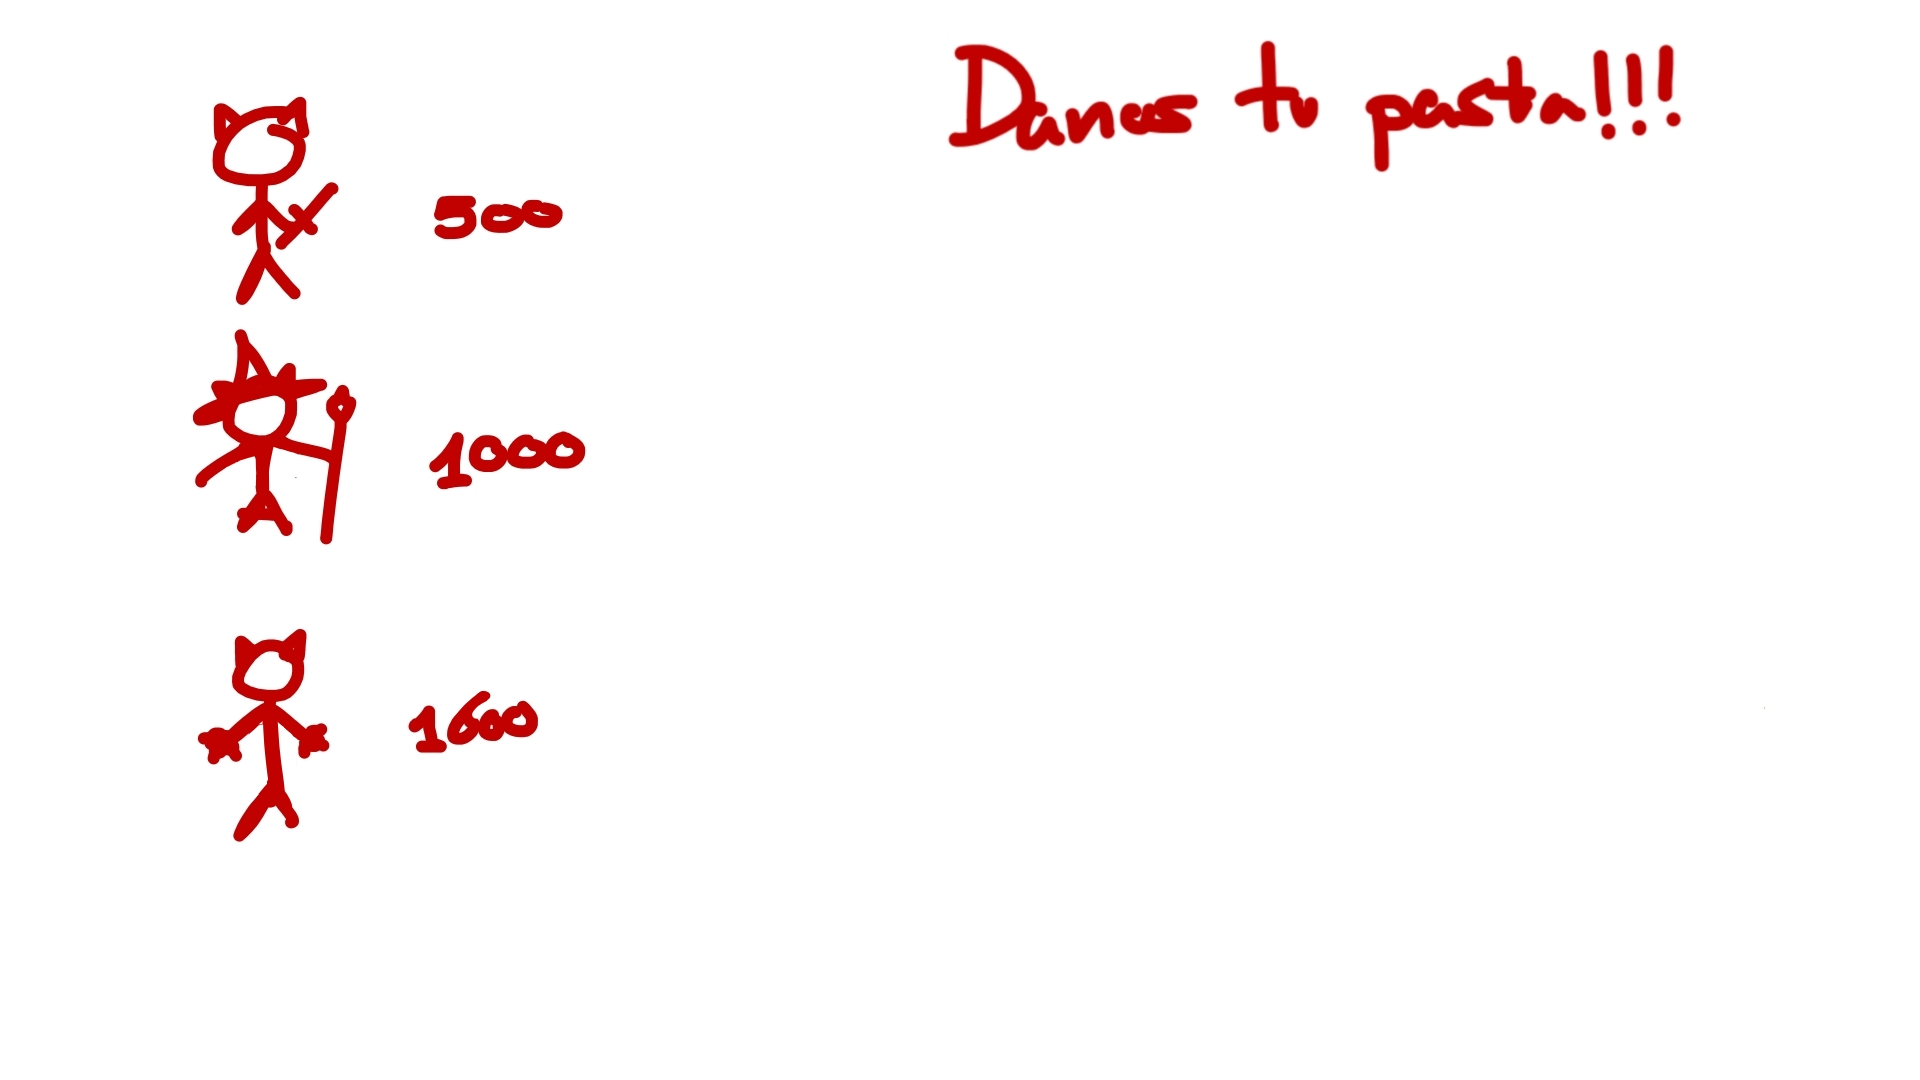 Danos tu pasta!!!
500
1000
1600